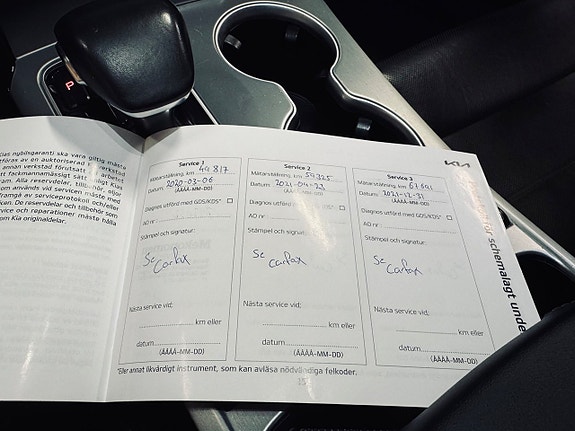 P
Kias nybilsgaranti ska vara giltig måste
föras av en auktoriserad
annan verkstad förutsatt
t fackmannamässigt sätt
Alla reservdelar,
som används vid servicen måste med
framgå av serviceprotokoll och/eller
De reservdelar och tillbehör som
service och reparationer måste hålla
som Kia originaldelar.
Service 1
Mätarställning, km 49 817
Datum: 2020-03-06
(ÅÅÅÅ-MM-DD)
Diagnos utförd med GDS/KDS*
AO nr
Stämpel och signatur:
Se
carfax
Nästa service vid:
km eller
datum
(ÅÅÅÅ-MM-DD)
Service 2
Mätarställning, km 59325
Datum: 2021-04-23
(ÅÅÅÅ-MM-DD)
Diagnos utförd med GDS/KDS*
AO nr
Stämpel och signatur:
Se
carfax
Nästa service vid:
km eller
datum
(ÅÅÅÅ-MM-DD)
Service 3
Mätarställning, km 67691
Datum: 2021-12-31
(ÅÅÅÅ-MM-DD)
Diagnos utförd med GDS/KDS*
AO nr
Stämpel och signatur:
Se
carfax
Nästa service vid:
km eller
datum
(ÅÅÅÅ-MM-DD)
*Eller annat likvärdigt instrument, som kan avläsa nödvändiga felkoder.
KIA
för schemalagt unde